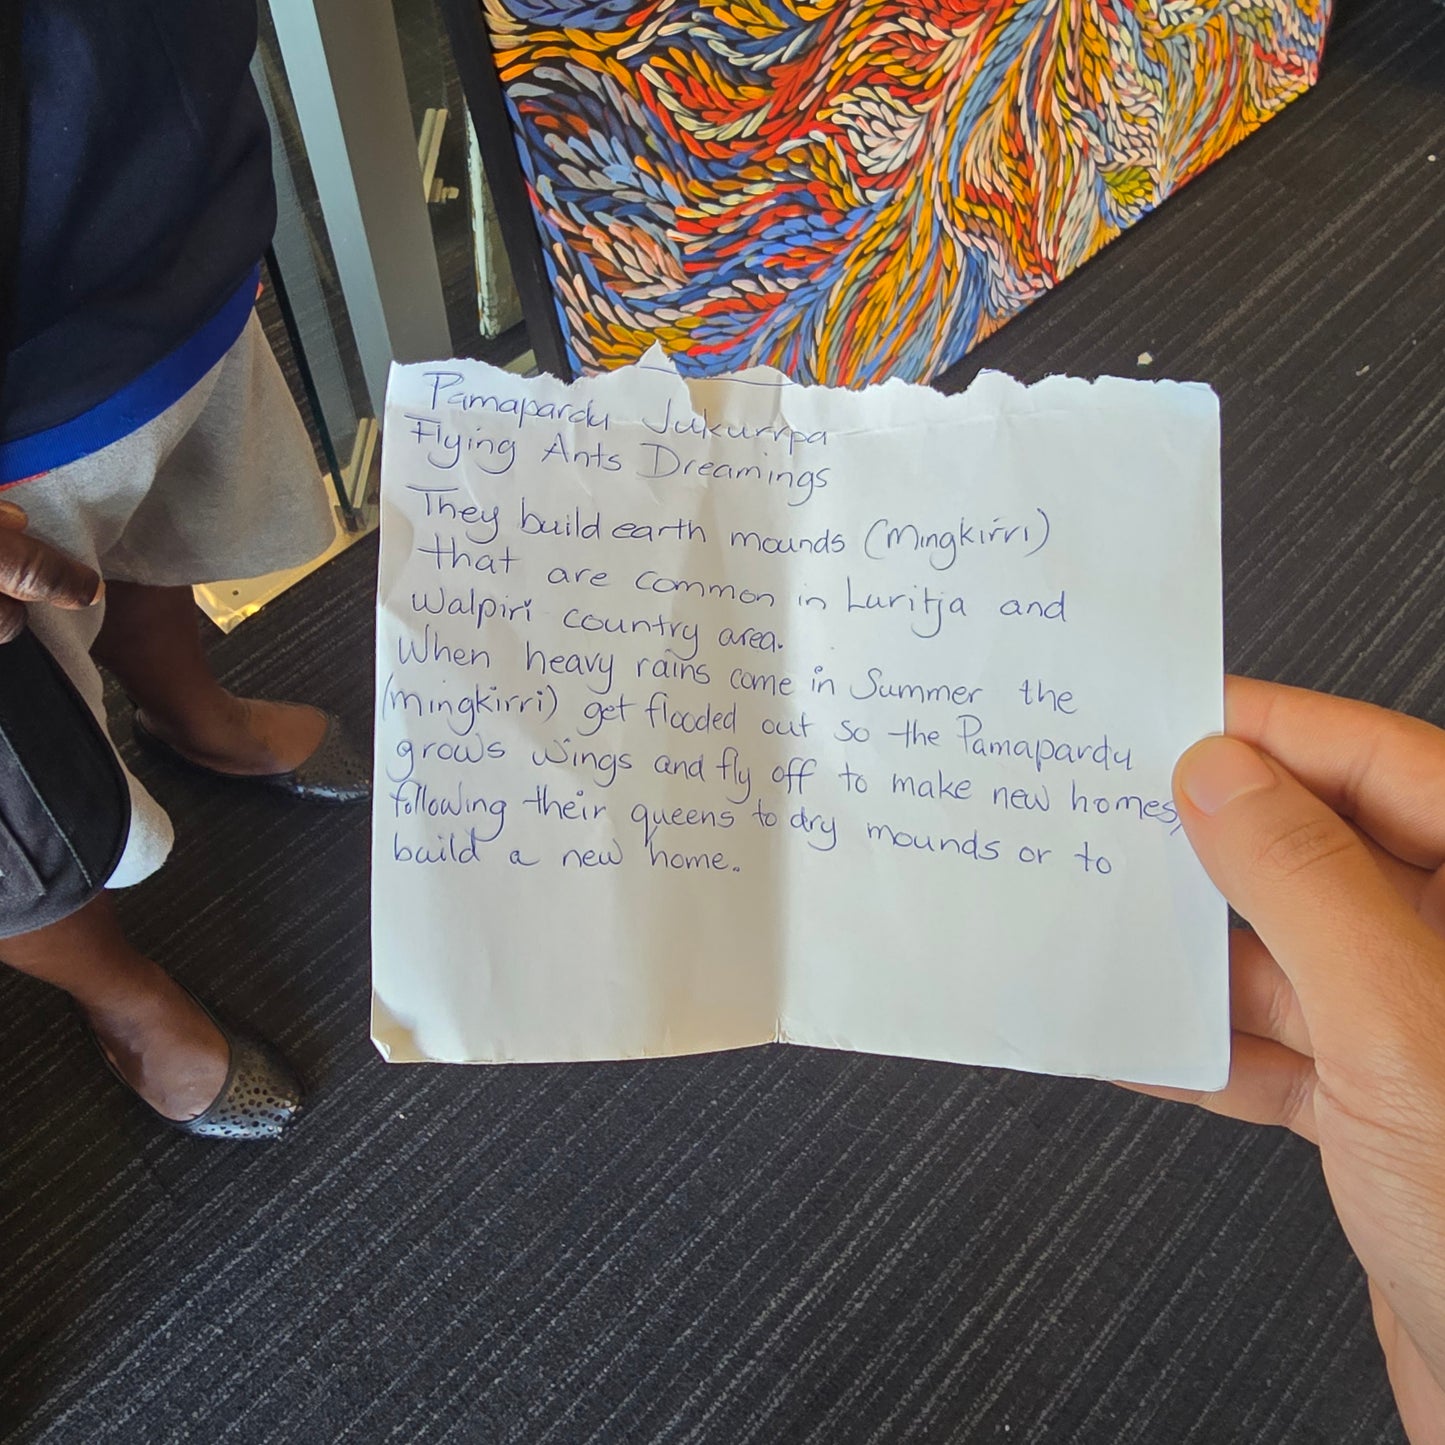 Pamapardu Jukurrpa
Flying Ants Dreamings
They build earth mounds (Mingkirri)
that are common in Luritja and
Walpiri country area.
When heavy rains come in Summer the
(mingkirri) get flooded out so the Pamapardu
grows wings and fly off to make new homes,
following their queens to dry mounds or to
build a new home.